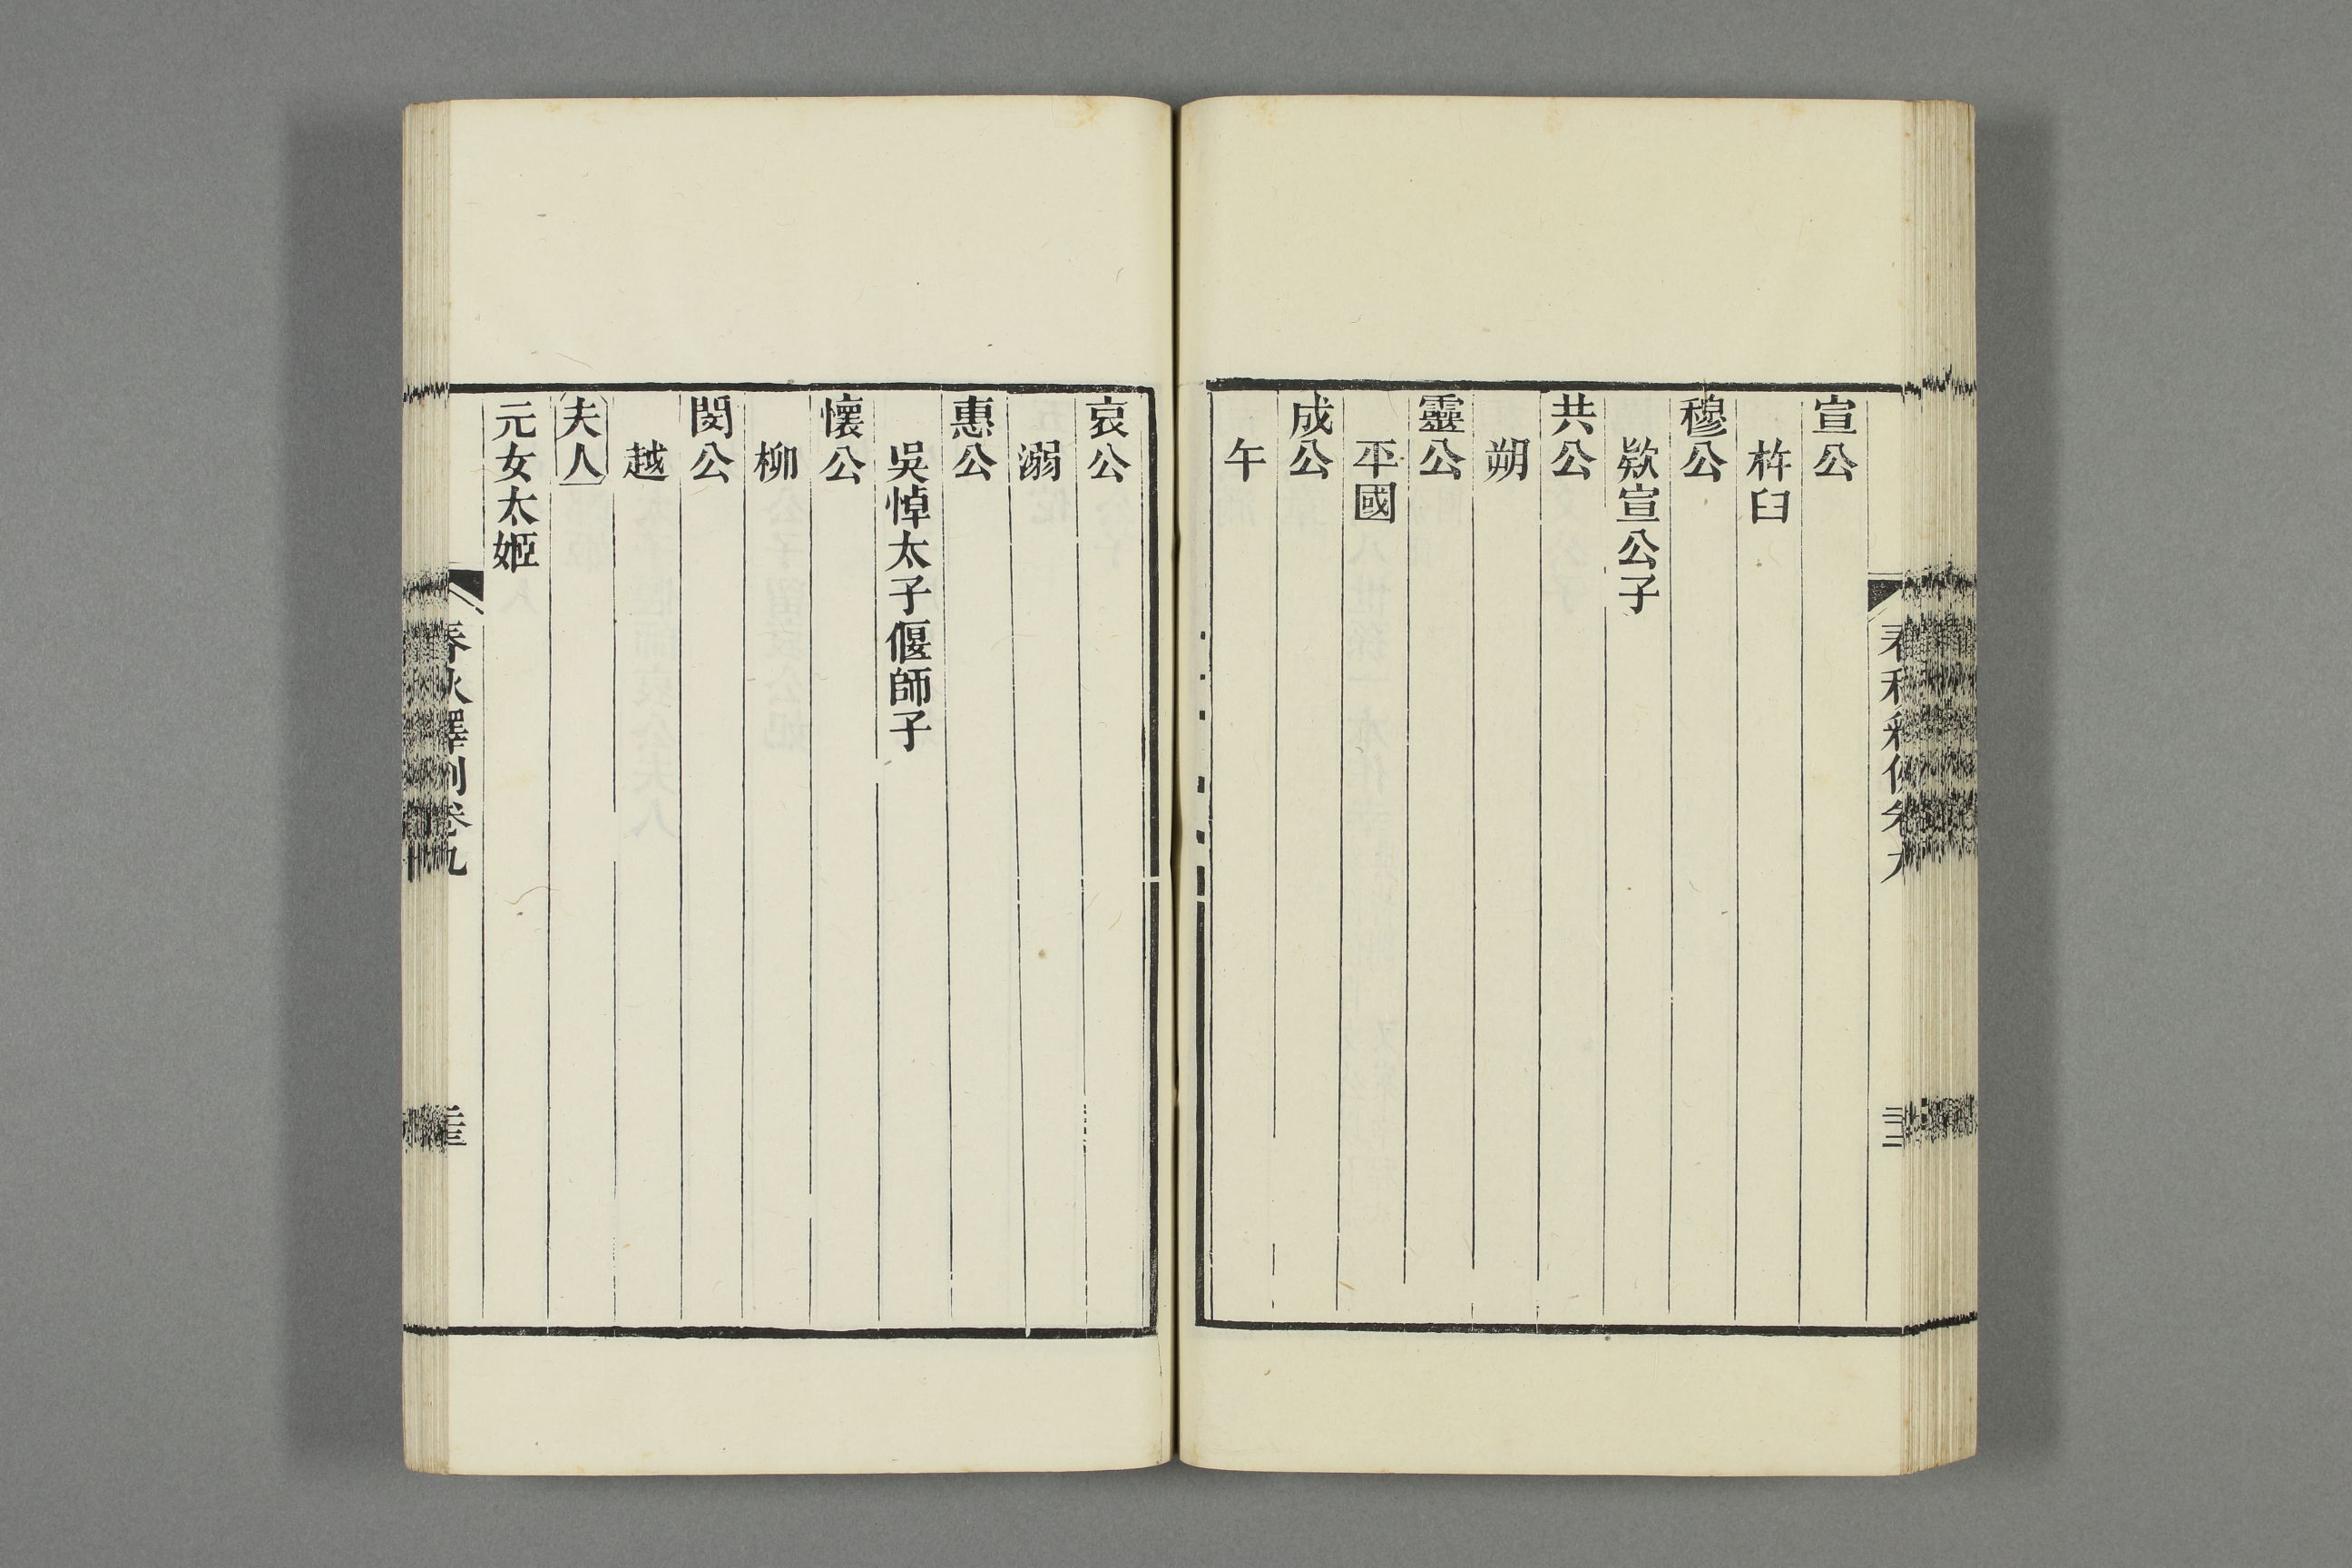 宣公
杵臼
穆公
欵宣公子
共公
朔
靈公
平國
成公
午
哀公
溺
惠公
吳悼太子偃師子
懷公
柳
閔公
越
夫人
元女太姬
春秋釋例卷九